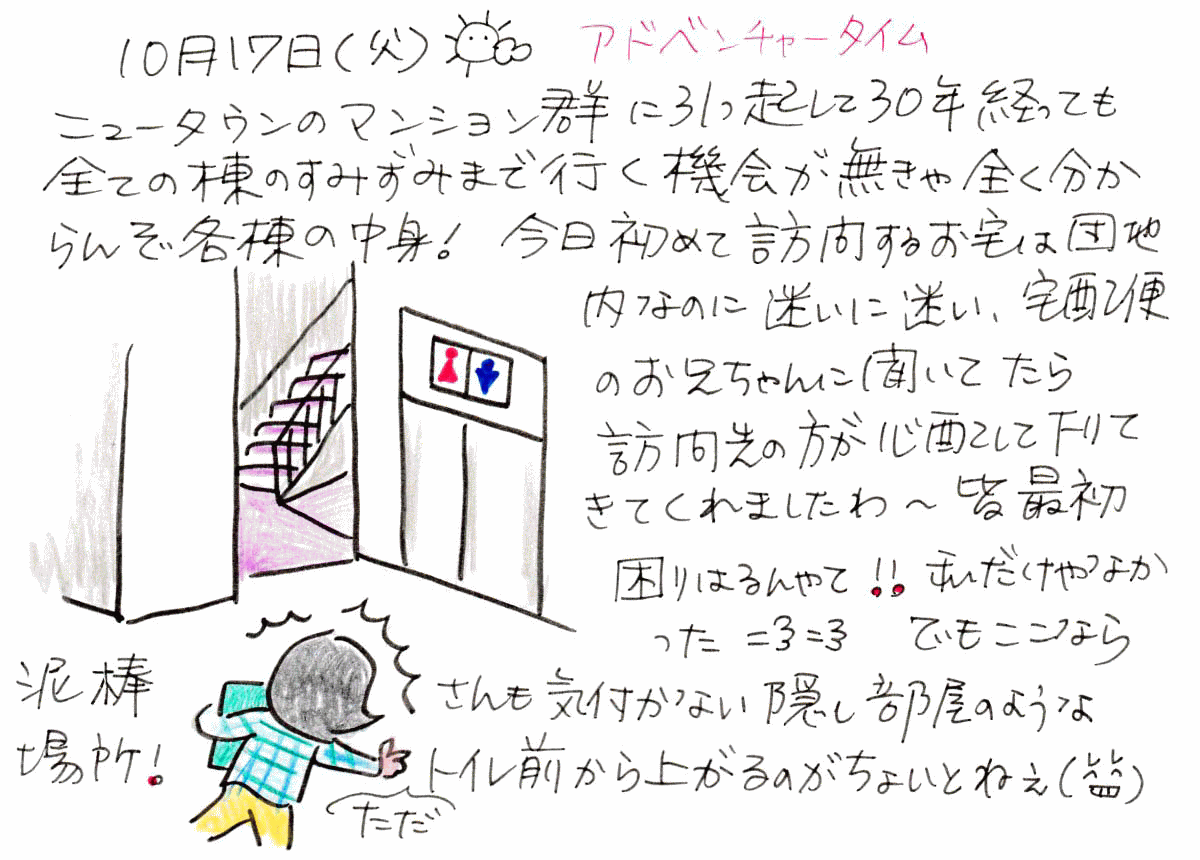 10月17日(火) アドベンチャータイム
ニュータウンのマンション群に引っ起して30年経っても
全ての棟のすみずみまで行く機会が無きゃ全く分か
らんぞ各棟の中身! 今日初めて訪問するお宅は団地
内なのに迷いに迷い、宅配便
のお兄ちゃんに聞いてたら
訪問先の方が心配して下りて
きてくれましたわ〜皆最初
困りはるんやて!! 私だけやなか
った =3=3 でもここなら
泥棒 さんも気付かない隠し部屋のような
場所! ただ
トイレ前から上がるのがちょいとねぇ(笑)